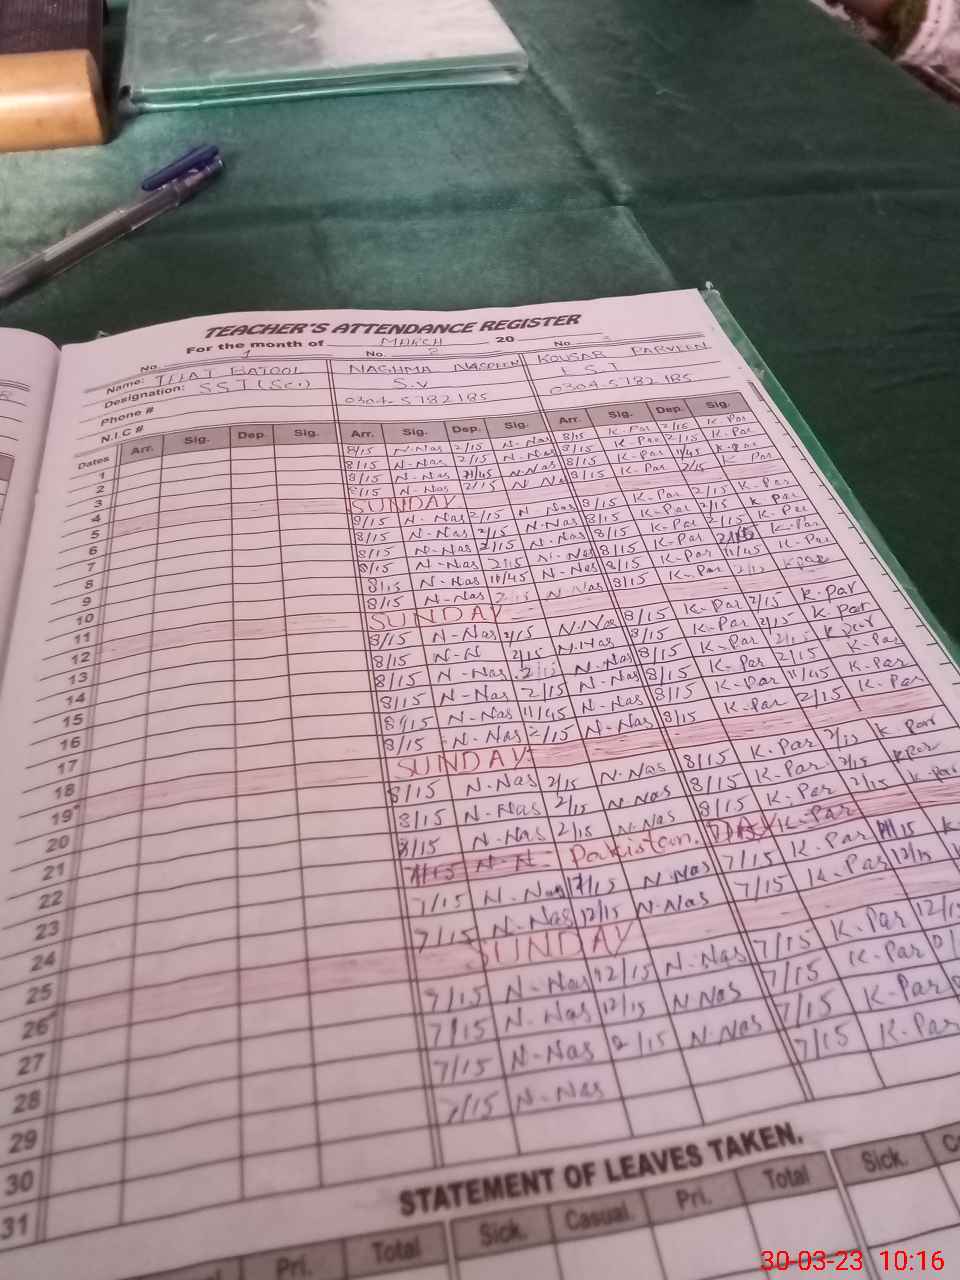 TEACHER'S ATTENDANCE REGISTER
For the month of MARCH 20
No. 1 No. 2 No. 3
Name: BATOOL NAGHMA NASREEN KOUSAR PARVEEN
Designation: SST (Sc.) S.V
Phone # 0304-5782185 0304-5782185
N.I.C #
Dates Arr. Sig. Dep. Sig. Arr. Sig. Dep. Sig. Arr. Sig. Dep. Sig.
1 8/15 N-Nas 2/15 N-Nas 8/15 K-Par 2/15 K-Par
2 8/15 N-Nas 2/15 N-Nas 8/15 K-Par 2/15 K-Par
3 8/15 N-Nas 11/45 N-Nas 8/15 K-Par 11/45 K-Par
4 8/15 N-Nas 2/15 N-Nas 8/15 K-Par 2/15 K-Par
5 SUNDAY
6 8/15 N-Nas 2/15 N-Nas 8/15 K-Par 2/15 K-Par
7 8/15 N-Nas 2/15 N-Nas 8/15 K-Par 2/15 K-Par
8 8/15 N-Nas 2/15 N-Nas 8/15 K-Par 2/15 K-Par
9 8/15 N-Nas 2/15 N-Nas 8/15 K-Par K-Par
10 8/15 N-Nas 11/45 N-Nas 8/15 K-Par 11/45 K-Par
11 8/15 N-Nas N-Nas 8/15 K-Par K-Par
12 SUNDAY
13 8/15 N-Nas 2/15 N-Nas 8/15 K-Par 2/15 K-Par
14 8/15 N-N 2/15 N-Nas 8/15 K-Par 2/15 K-Par
15 8/15 N-Nas N-Nas 8/15 K-Par 2/15 K-Par
16 8/15 N-Nas 2/15 N-Nas 8/15 K-Par 2/15 K-Par
17 8/15 N-Nas 11/45 N-Nas 8/15 K-Par 11/45 K-Par
18 8/15 N-Nas 2/15 N-Nas 8/15 K-Par 2/15 K-Par
19 SUNDAY
20 8/15 N-Nas 2/15 N-Nas 8/15 K-Par 2/15 K-Par
21 8/15 N-Nas 2/15 N-Nas 8/15 K-Par 2/15 K-Par
22 8/15 N-Nas 2/15 N-Nas 8/15 K-Par 2/15 K-Par
23 N-N Pakistan DAY K-Par
24 7/15 N-Nas N-Nas 7/15 K-Par K-
25 7/15 N-Nas 12/15 N-Nas 7/15 K-Par 12/15
26 SUNDAY
27 7/15 N-Nas 12/15 N-Nas 7/15 K-Par 12/15
28 7/15 N-Nas 12/15 N-Nas 7/15 K-Par
29 7/15 N-Nas 2/15 N-Nas 7/15 K-Par
30 7/15 N-Nas 7/15 K-Par
31
STATEMENT OF LEAVES TAKEN.
Pri. Total Sick. Casual. Pri. Total Sick.
30-03-23 10:16